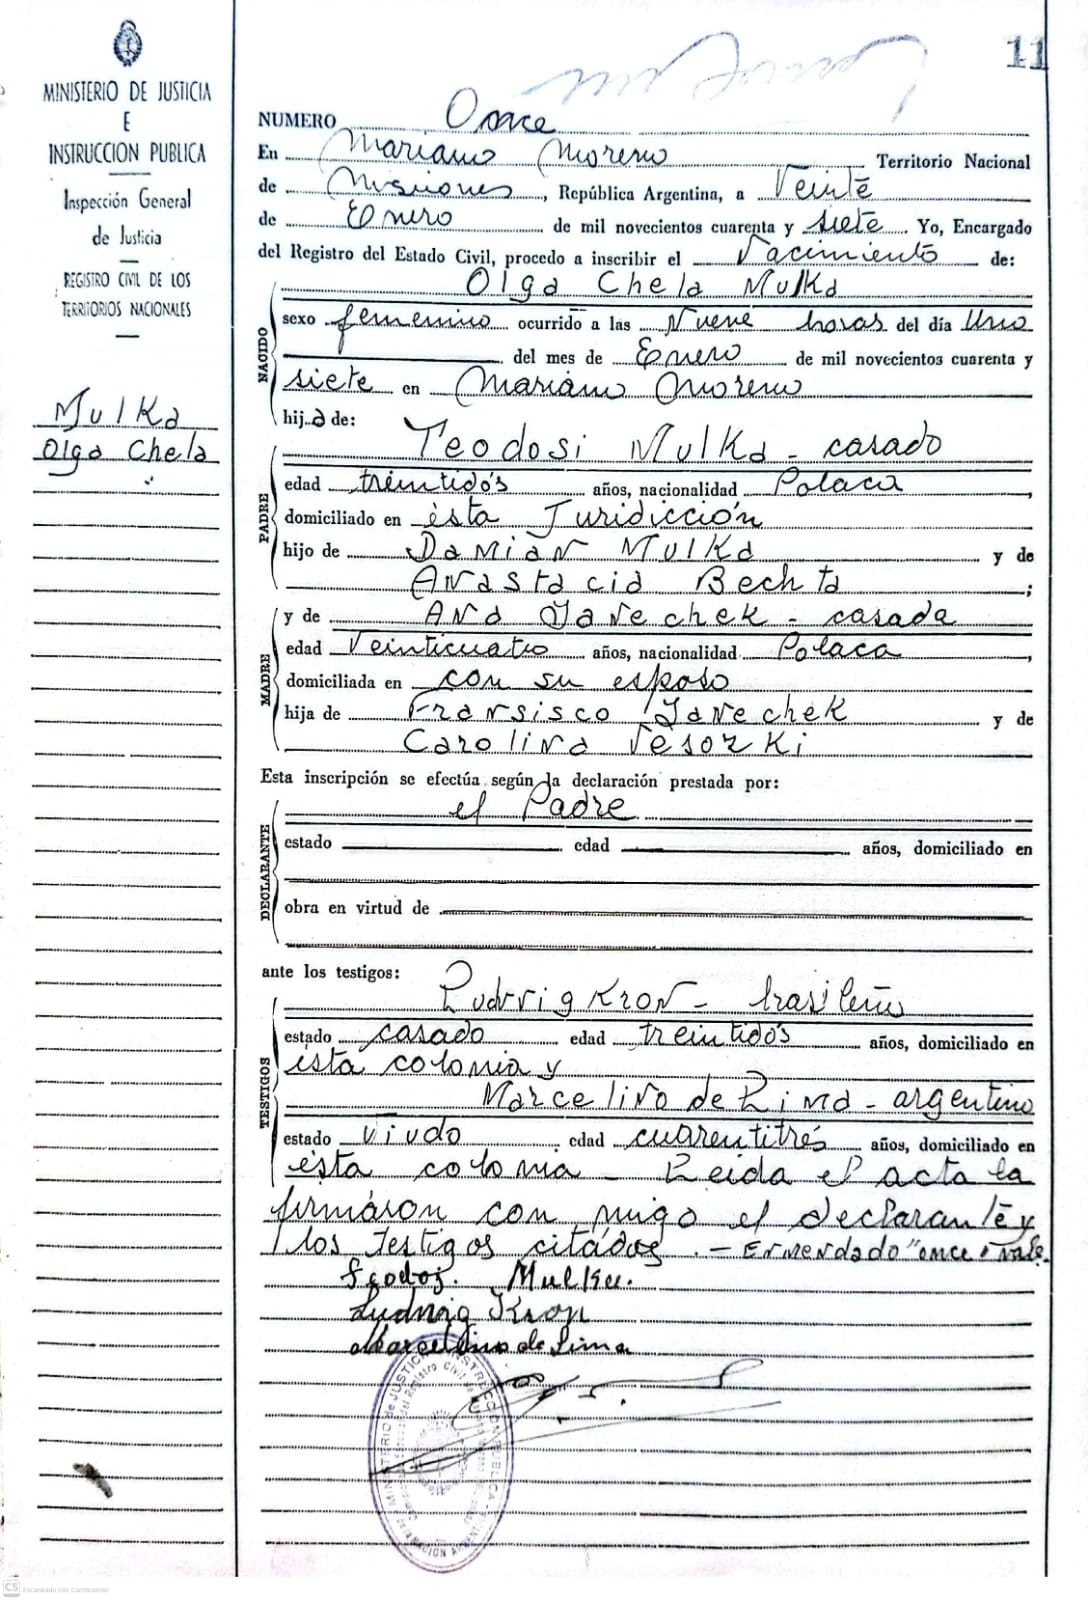 11
MINISTERIO DE JUSTICIA
E
INSTRUCCION PUBLICA
Inspección General
de Justicia
REGISTRO CIVIL DE LOS
TERRITORIOS NACIONALES
Mulka
Olga Chela
NUMERO Once
En Mariano Moreno Territorio Nacional
de Misiones, República Argentina, a Veinte
de Enero de mil novecientos cuarenta y siete. Yo, Encargado
del Registro del Estado Civil, procedo a inscribir el Nacimiento de:
Olga Chela Mulka
NACIDO
sexo femenino ocurrido a las Nueve horas del día Uno
del mes de Enero de mil novecientos cuarenta y
siete en Mariano Moreno
hija de:
Teodosi Mulka - casado
PADRE
edad treintidós años, nacionalidad Polaca,
domiciliado en ésta Juridicción
hijo de Damián Mulka y de
Anastacia Bechta;
y de Ana Janechek - casada
MADRE
edad Veinticuatro años, nacionalidad Polaca,
domiciliada en con su esposo
hija de Fransisco Janechek y de
Carolina Vesorzki
Esta inscripción se efectúa según la declaración prestada por:
el Padre
DECLARANTE
estado edad años, domiciliado en
obra en virtud de
ante los testigos:
Ludvvig Kron - brasileño
TESTIGOS
estado casado edad treintidós años, domiciliado en
ésta colonia y
Marcelino de Lima - argentino
estado viudo edad cuarentitrés años, domiciliado en
ésta colonia - Leida el acta la
firmáron con migo el declarante y
los testigos citádos. - Enmendado "once" vale.
Teodoz. Mulka.
Ludwig Kron
Marcellino de Lima
MINISTERIO de JUSTICIA INSTRUCCION PUBLICA
Registro Civil
CS Escaneado con CamScanner